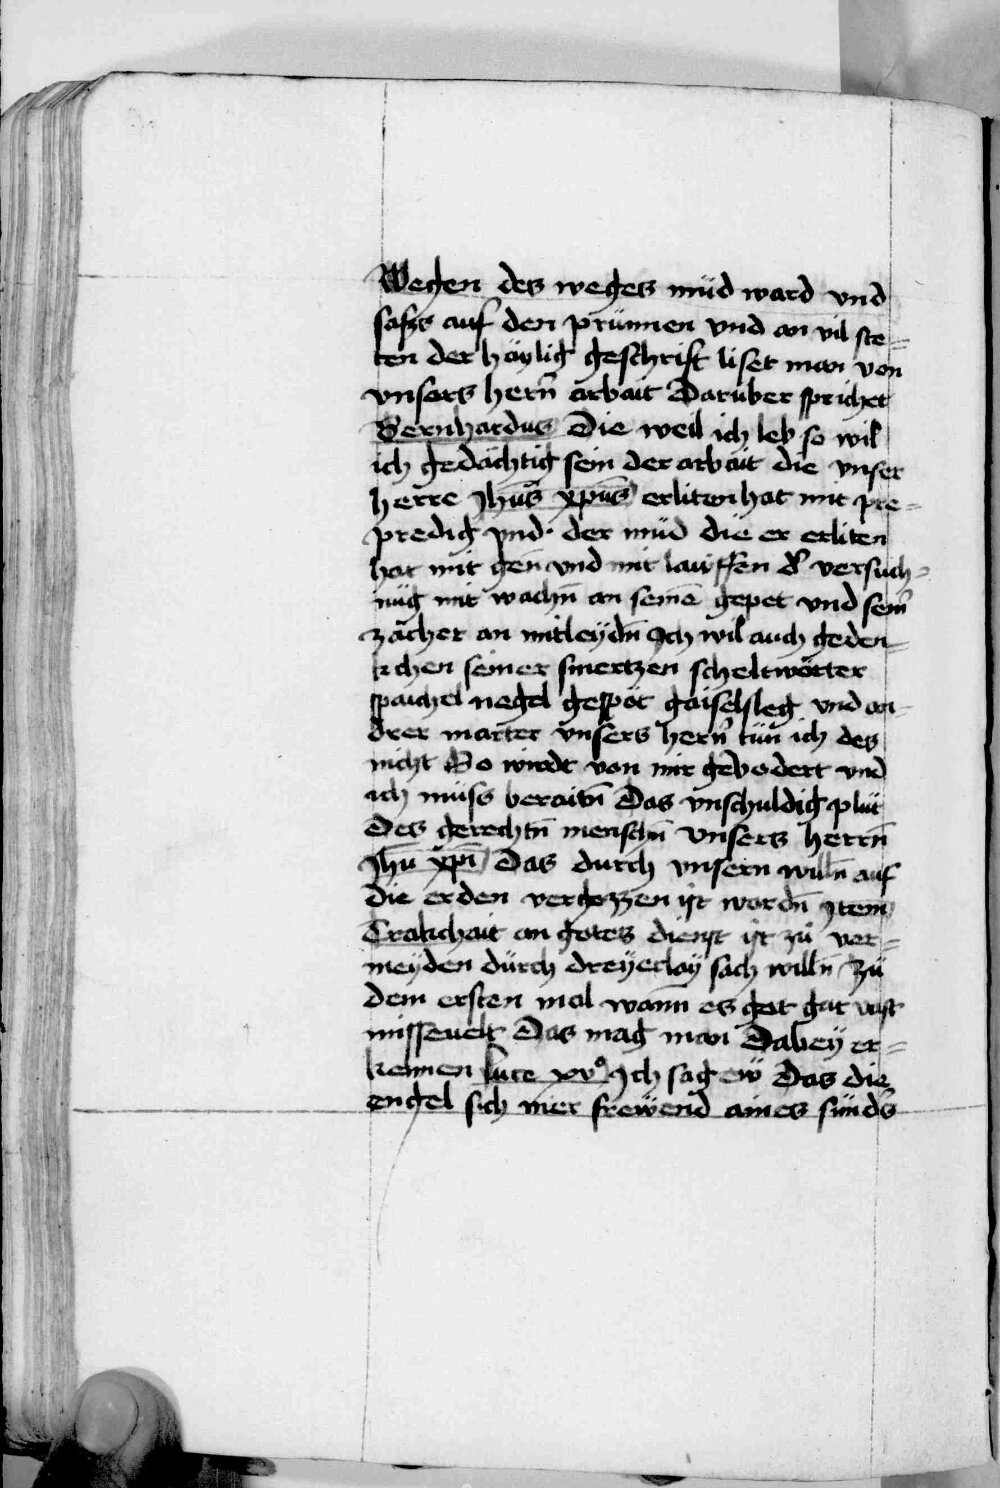 Wegen des weges müd ward vnd
safzs auf den prünnen vnd an vil ste-
ten der häylig geschrift liset man von
vnsers hern̄ arbait Darüber sprichet
Bernhardus Die weil ich leb so wil
ich gedächtig sein der arbait die vnser
herre Jhūs xp̄us erliten hat mit pre-
predig vnd der müd die er erliten
hat mit gen̄ vnd mit lauffen d' versuch-
nūg mit wachn̄ an seinē gepet vnd sein'
zächer an mitleydn̄ Ich wil auch geden-
kchen seiner smertzen scheltwörter
spaichel negel gespöt gaiselsleg vnd an-
drer marter vnsers hern̄ tün ich des
nicht So wirdt von mir gevodert vnd
ich müss beraitn̄ Das vnschuldig plüt
Des gerechtn̄ menschn̄ vnsers herrn̄
Jhū xp̄i Das durch vnsern willn̄ auf
die erden vergozzen ist wordn̄ Item
Trakchait an gotes dienst ist zü ver-
meyden dürch dreyerlay sach willn̄ Zü
dem ersten mal wann es got gar vast
missevelt Das mag man Dabey er-
kennen luce xv° Ich sag ew Das die
engel sich mer frewend aines sünd's